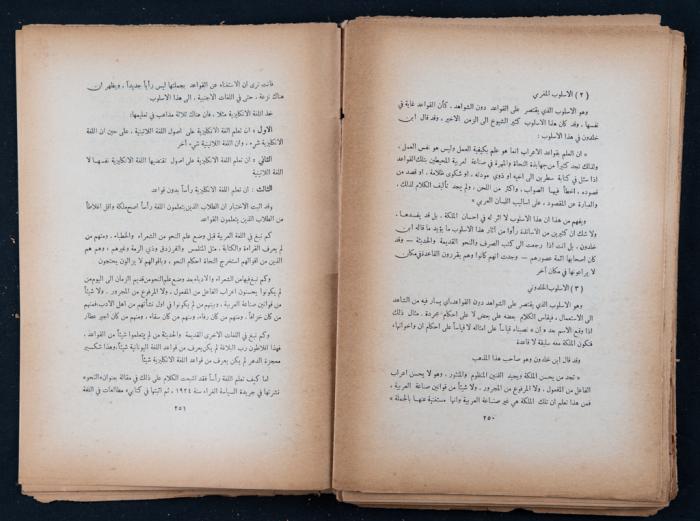 ( ٢ ) الاسلوب المغربي
وهو الاسلوب الذي يقتصر على القواعد دون الشواهد ، كأن القواعد غاية في
نفسها . وقد كان هذا الاسلوب كثير الشيوخ الى الزمن الاخير ، وقد قال ابن
خلدون في هذا الاسلوب :
« ان العلم بقواعد الاعراب انما هو علم بكيفية العمل وليس هو نفس العمل ،
ولذلك نجد كثيراً من جهابذة النحاة والمهرة في صناعة العربية المحيطين بتلك القواعد
اذا سئل في كتابة سطرين الى اخيه او ذوي مودته ، او شكوى ظلامة ، او قصد من
قصوده ، اخطأ فيها الصواب ، واكثر من اللحن ، ولم يجد تأليف الكلام لذلك ،
والعبارة عن المقصود ، على اساليب اللسان العربي »
ويفهم من هذا ان هذا الاسلوب لا اثر له في احسان الملكة ، بل قد يفسدها .
ولا شك ان كثيرين من الاساتذة رأوا من آثار هذا الاسلوب ما يؤيد ما قاله ابن
خلدون . بل انت اذا رجعت الى كتب الصرف والنحو القديمة والحديثة — وقد
كان اصحابها ائمة عصورهم — وجدت انهم كانوا وهم يقررون القاعدة في مكان
لا يراعونها في مكان آخر
( ٣ ) الاسلوب الخلدوني
وهو الاسلوب الذي يقتصر على الشواهد دون القواعد، اي يسار فيه من الشاهد
الى الاستعمال ، فيقاس الكلام بعضه على بعض لا على احكام مجردة . مثال ذلك
اذا وقع الاسم بعد « ان » نصبناه قياساً على امثاله لا قياساً على احكام ان واخواتها،
فتكون الملكة معه سابقة لا قاعدة
وقد قال ابن خلدون وهو صاحب هذا المذهب
« نجد من يحسن الملكة ويجيد الفنين المنظوم والمنثور ، وهو لا يحسن اعراب
الفاعل من المفعول ، ولا المرفوع من المجرور ، ولا شيئاً من قوانين صناعة العربية ،
فمن هذا تعلم ان تلك الملكة هي غير صناعة العربية وانها مستغنية عنها بالجملة »
٢٥٠
فانت ترى ان الاستغناء عن القواعد بجملتها ليس رأياً جديداً ، ويظهر ان
هناك نزعة ، حتى في اللغات الاجنبية ، الى هذا الاسلوب
خذ اللغة الانكليزية مثلا ، فان هناك ثلاثة مذاهب في تعليمها :
الاول : ان تعلم اللغة الانكليزية على اصول اللغة اللاتينية ، على حين ان اللغة
الانكليزية شيء ، وان اللغة اللاتينية شيء آخر
الثاني : ان تعلم اللغة الانكليزية على اصول تقتضيها اللغة الانكليزية نفسها لا
اللغة اللاتينية
الثالث : ان تعلم اللغة الانكليزية رأساً بدون قواعد
وقد اثبت الاختبار ان الطلاب الذين يتعلمون اللغة رأساً اصح ملكة واقل اغلاطاً
من الطلاب الذين يتعلمون القواعد
كم نبغ في اللغة العربية قبل وضع علم النحو من الشعراء والخطباء . ومنهم من
لم يعرف القراءة والكتابة ، مثل المتلمس والفرزدق وذي الرمة وغيرهم ، وهم هم
الذين من اقوالهم استخرج النحاة احكام النحو ، وباقوالهم لا يزالون يحتجون
وكم نبغ فيها من الشعراء والادباء بعد وضع علم النحو من قديم الزمان الى اليوم من
لم يكونوا يحسنون اعراب الفاعل من المفعول ، ولا المرفوع من المجرور ، ولا شيئاً
من قوانين صناعة العربية ، وبينهم من لم يكونوا في اول نشأتهم من اهل الادب، فمنهم
من كان خزافاً . ومنهم من كان رفاء، ومنهم من كان سقاء ، ومنهم من كان اجير عطار
وكم نبغ في اللغات الاخرى القديمة والحديثة من لم يتعلموا شيئاً من القواعد ،
فهذا افلاطون رب البلاغة لم يكن يعرف من قواعد اللغة اليونانية شيئاً، وهذا شكسبير
معجزة الدهر لم يكن يعرف من قواعد اللغة الانكليزية شيئاً
اما كيف تعلم اللغة رأساً فقد اشبعت الكلام على ذلك في مقالة بعنوان «النحو»
نشرتها في جريدة السياسة الغراء سنة ١٩٢٤ ، ثم اثبتها في كتابي « مطالعات في اللغة
٢٥١